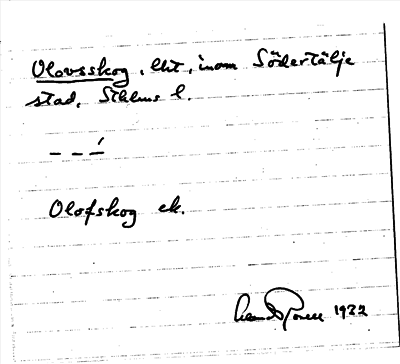 Olovsskog, lht, inom Södertälje
stad, Sthlms l.
– – –́
Olofskog ek.
1932